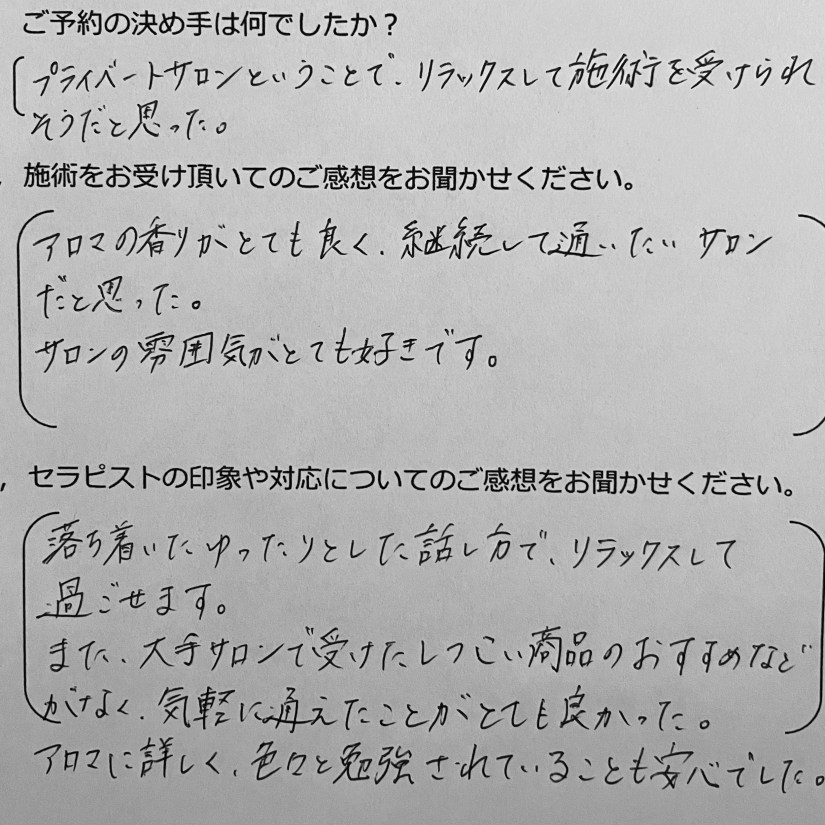 ご予約の決め手は何でしたか？
プライベートサロンということで、リラックスして施術を受けられ
そうだと思った。
施術をお受け頂いてのご感想をお聞かせください。
アロマの香りがとても良く、継続して通いたいサロン
だと思った。
サロンの雰囲気がとても好きです。
セラピストの印象や対応についてのご感想をお聞かせください。
落ち着いたゆったりとした話し方で、リラックスして
過ごせます。
また、大手サロンで受けたしつこい商品のおすすめなど
がなく、気軽に通えたことがとても良かった。
アロマに詳しく、色々と勉強されていることも安心でした。